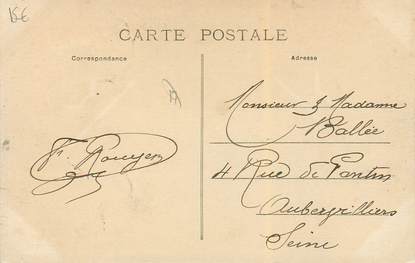 15€
CARTE POSTALE
Correspondance
Adresse
F. Rouyer
Monsieur & Madame
Ballée
4 Rue de Pantin
Aubervilliers
Seine